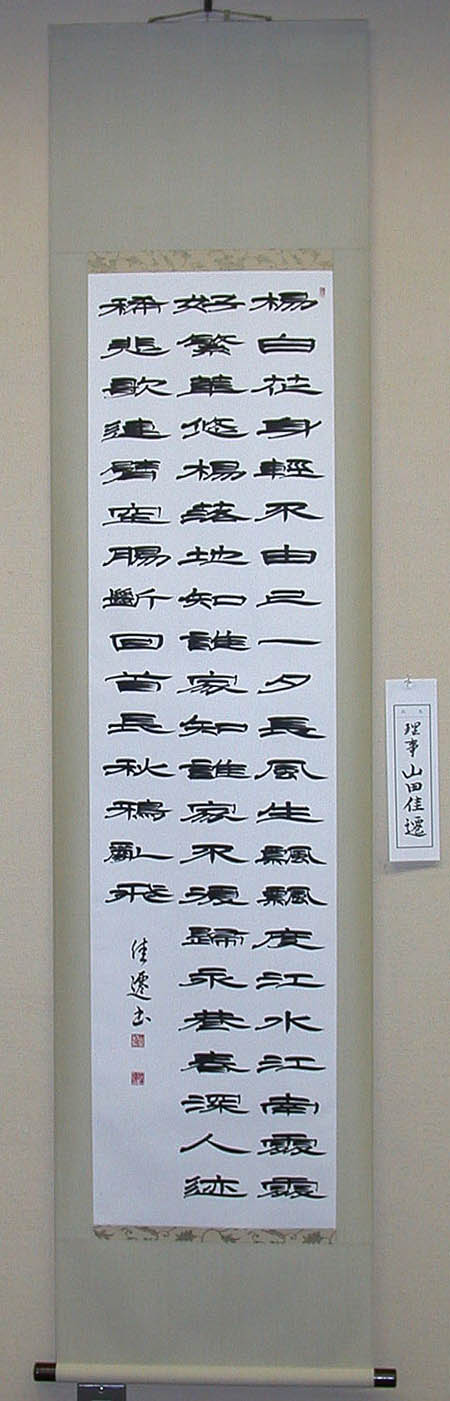 楊白花身輕不由己一夕長風生飄飄度江水江南處處
好繁華悠楊落地知誰家知誰家不復歸永巷春深人迹
稀悲歌連臂空腸斷回首長秋鴉亂飛
佳遷書
理事 山田佳遷